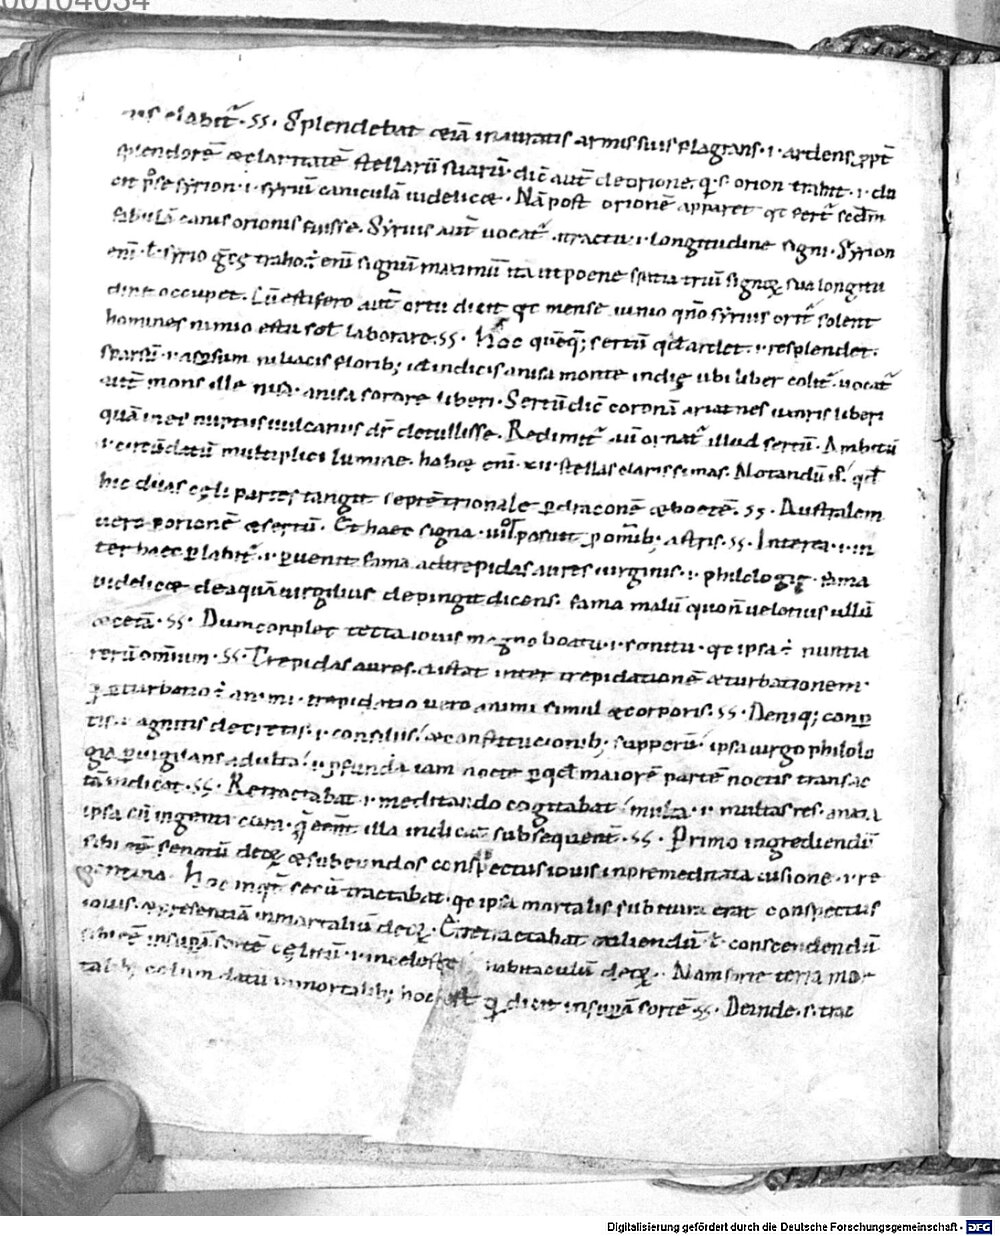 00104034
nis elabit᷑ · ss · Splendebat etiā inauratis armis suis flagrans · i · ardens ꝓpt̄
splendorē & claritatē stellarū suarū · dic̄ aut̄ de orione · q̄ · s · orion trahit · i · du
cit p̱ se syrion · i · syriū caniculā uidelicet · Nā post orionē apparet qc̄ fert᷑ sc̄dm
fabulā canis orionis fuisse · Syrius aut̄ uocat᷑ · tractu · i · longitudine signi · Syrion
eni · syrio traho · ē eni signū maximū ita ut poene spatia triū signoꝝ sua longitu
dine occupet · Lū estifero aut̄ ortu dicit qc̄ mense iunio qn̄o syrius orit᷑ solent
homines nimio estu sol laborare · ss · Hoc quēq; sertū qd̄ ardet · i · resplendet ·
sparsū · i · aspsum niuacis florib; id indicis anisa monte indię ubi liber colit᷑ · uocat᷑
aut̄ mons ille nisa · anisa sorore liberi · Sertū dic̄ coronā ariatnes uxoris liberi
quā inter nuptus uulcanus dr̄ detulisse · Redimit᷑ · ornat᷑ illud sertū · Ambitū
· i · circūdatū multiplici lumine · habet eni · xii · stellas clarissimas · Notandū · qd̄
hic duas cęli partes tangit septētrionale ꝑ draconē & boetē · ss · Australem
uero ꝑ orionē & sertū · Et haec signa posuit ꝓ omib; astris · ss · Interea · i · in
ter haec ꝑlabit᷑ · i · ꝑuenit fama ad trepidas aures uirginis · i · philologię · fama
uidelicet dea quā uirgilius depingit dicens · fama malū quo n̄ uelotius ullū
& cetā · ss · Dum conplet tecta iouis magno boatu · i · sonitu · qc̄ ipsa ē nuntia
rerū omnium · ss · Trepidas aures · distat inter trepidationē & turbationem ·
ꝑturbatio ē animi · trepidatio uero animi simul & corporis · ss · Deniq; conp
tis · i · agnitis decretis · i · consiliis & constitucionib; supperū ipsa uirgo philolo
gia ꝑuigilans adulta ꝓfunda iam nocte ꝑ qd̄ maiorē partē noctis transac
tā indicat · ss · Retractabat · i · meditando cogitabat multa · i · multas res · anxia
ipsa cū ingenti cura · illa indicat subsequent̄ · ss · Primo ingrediendū
sibi eē senatū deoꝝ & subeundos conspectus iouis inpremeditata uisione · i · re
pentina · Hoc inqt̄ secū tractabat · qc̄ ipsa mortalis subitura erat conspectus
iouis · & presentiā inmortaliū deoꝝ · Et retractabat exiliendū · conscendendū
sibi eē in suꝑā sortē cęlitū · i · in celeste habitaculū deoꝝ · Nam sorte terra mor
talib; celum datū inmortalib; hoc est q̄ dicit in suꝑā sortē · ss · Deinde · s · trac
Digitalisierung gefördert durch die Deutsche Forschungsgemeinschaft - DFG